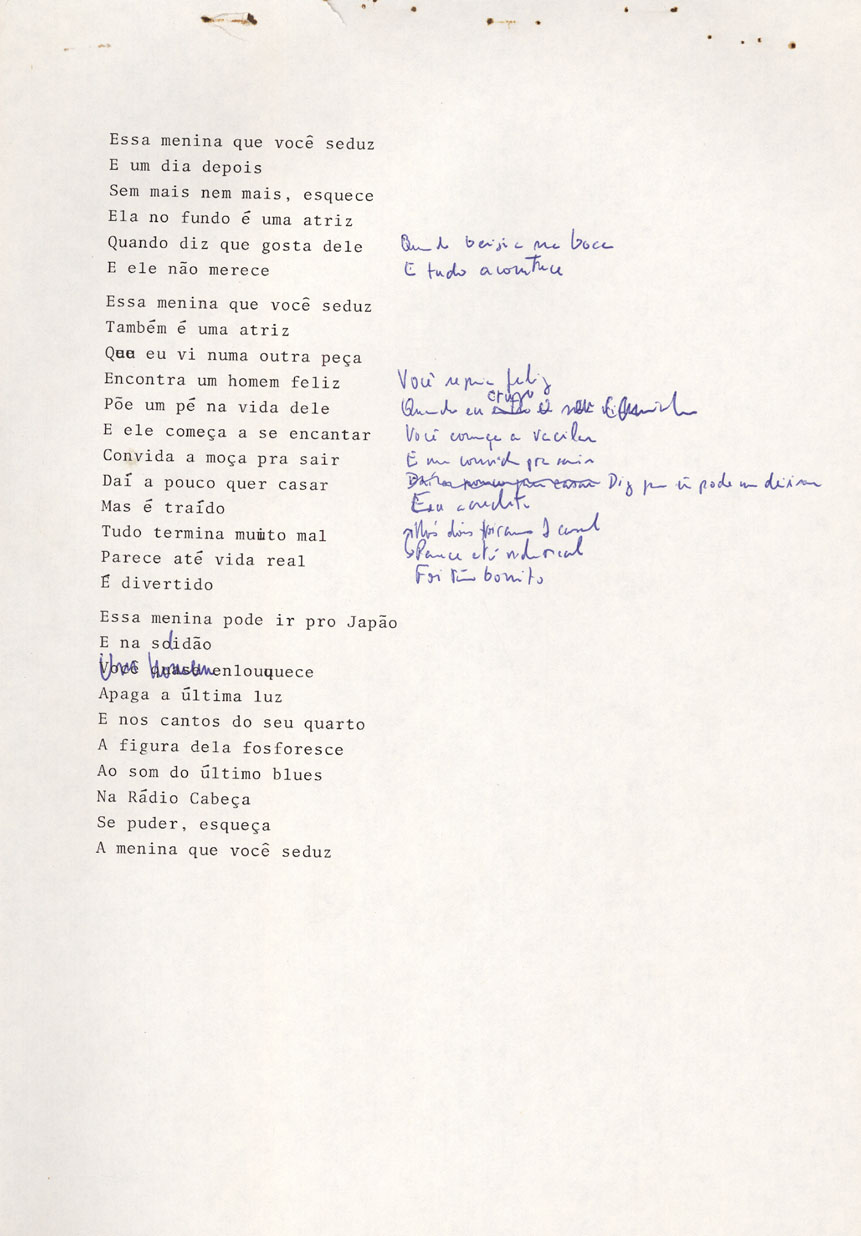 Essa menina que você seduz
E um dia depois
Sem mais nem mais, esquece
Ela no fundo é uma atriz
Quando diz que gosta dele Quando beija na boca
E ele não merece E tudo acontece
Essa menina que você seduz
Também é uma atriz
Que eu vi numa outra peça
Encontra um homem feliz Você feliz
Põe um pé na vida dele Quando eu chego
E ele começa a se encantar Você começa a vacilar
Convida a moça pra sair E me convida pra sair
Daí a pouco quer casar Diz que
Mas é traído Eu acredito
Tudo termina muito mal Nós dois
Parece até vida real Parece até vida real
É divertido Foi tão bonito
Essa menina pode ir pro Japão
E na solidão
enlouquece
Apaga a última luz
E nos cantos do seu quarto
A figura dela fosforesce
Ao som do último blues
Na Rádio Cabeça
Se puder, esqueça
A menina que você seduz